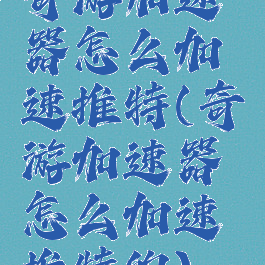 奇游加速
器怎么加
速推特(奇
游加速器
怎么加速
推特的)